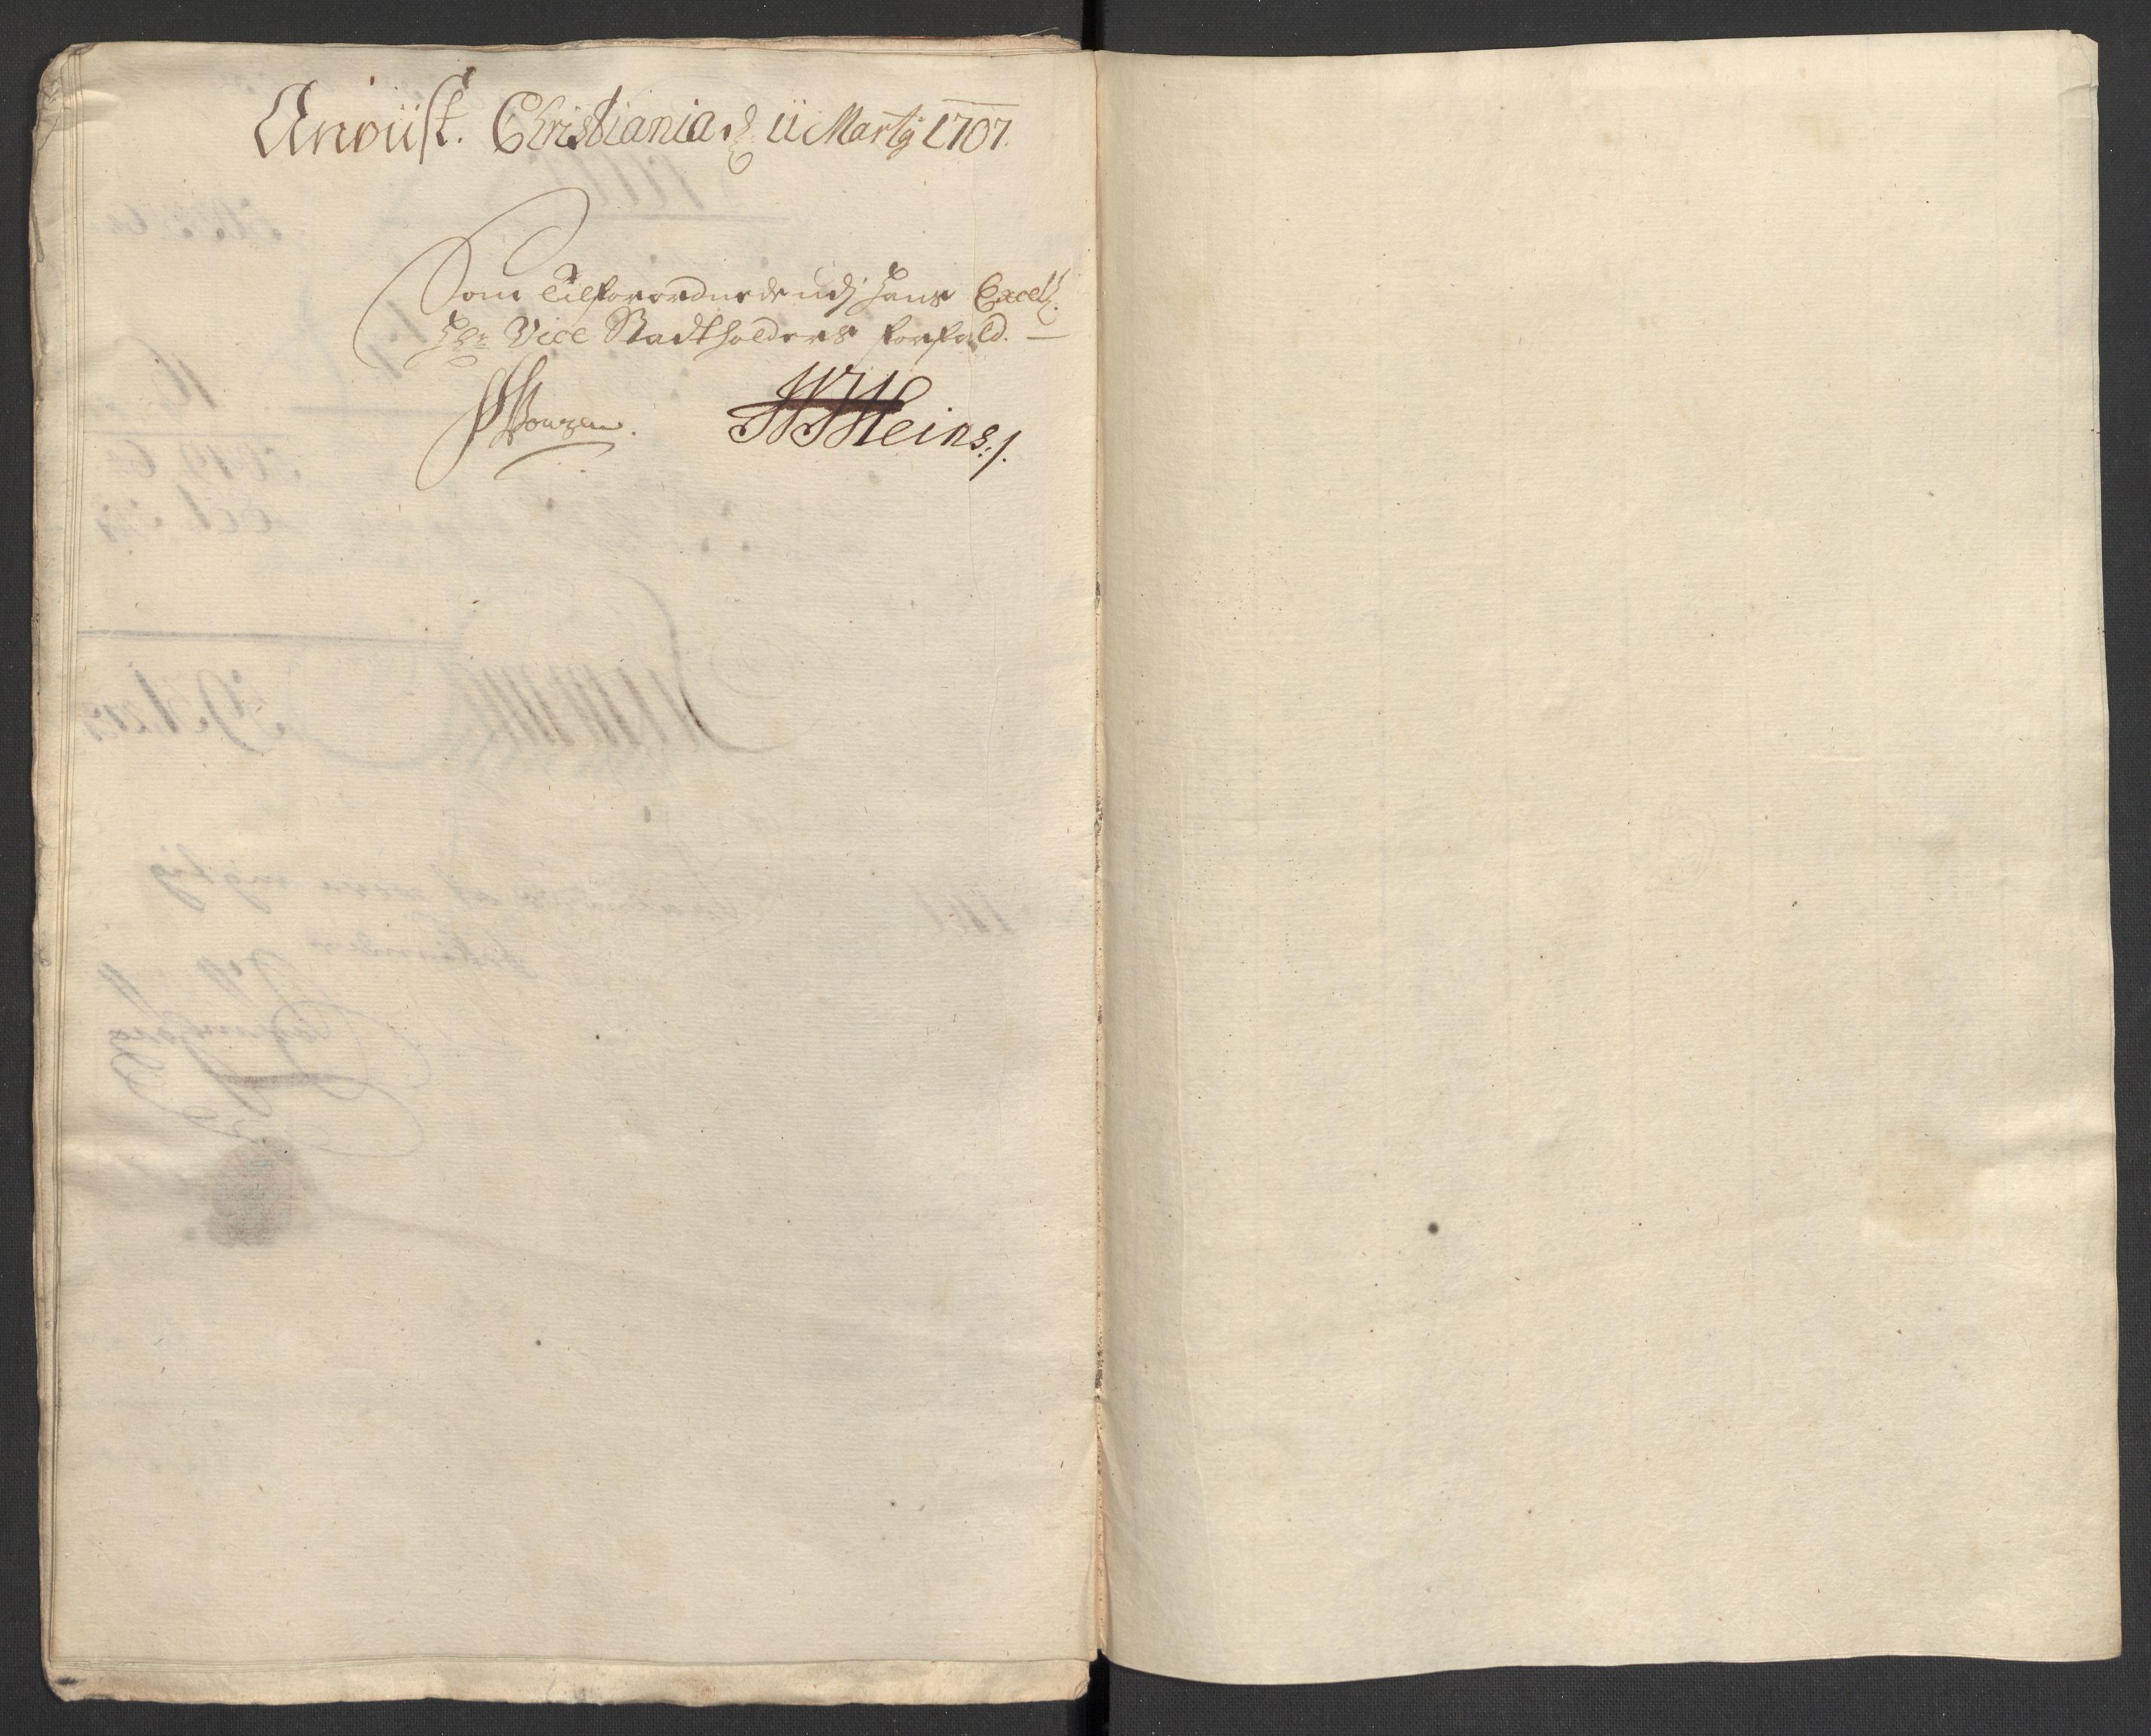 Anviist. Christiania d. 11 Martij 1707.
Som Tilforordnede udj Hans Excell:
Hr: Vice Stadtholders forfald. —
WHHeins:/.